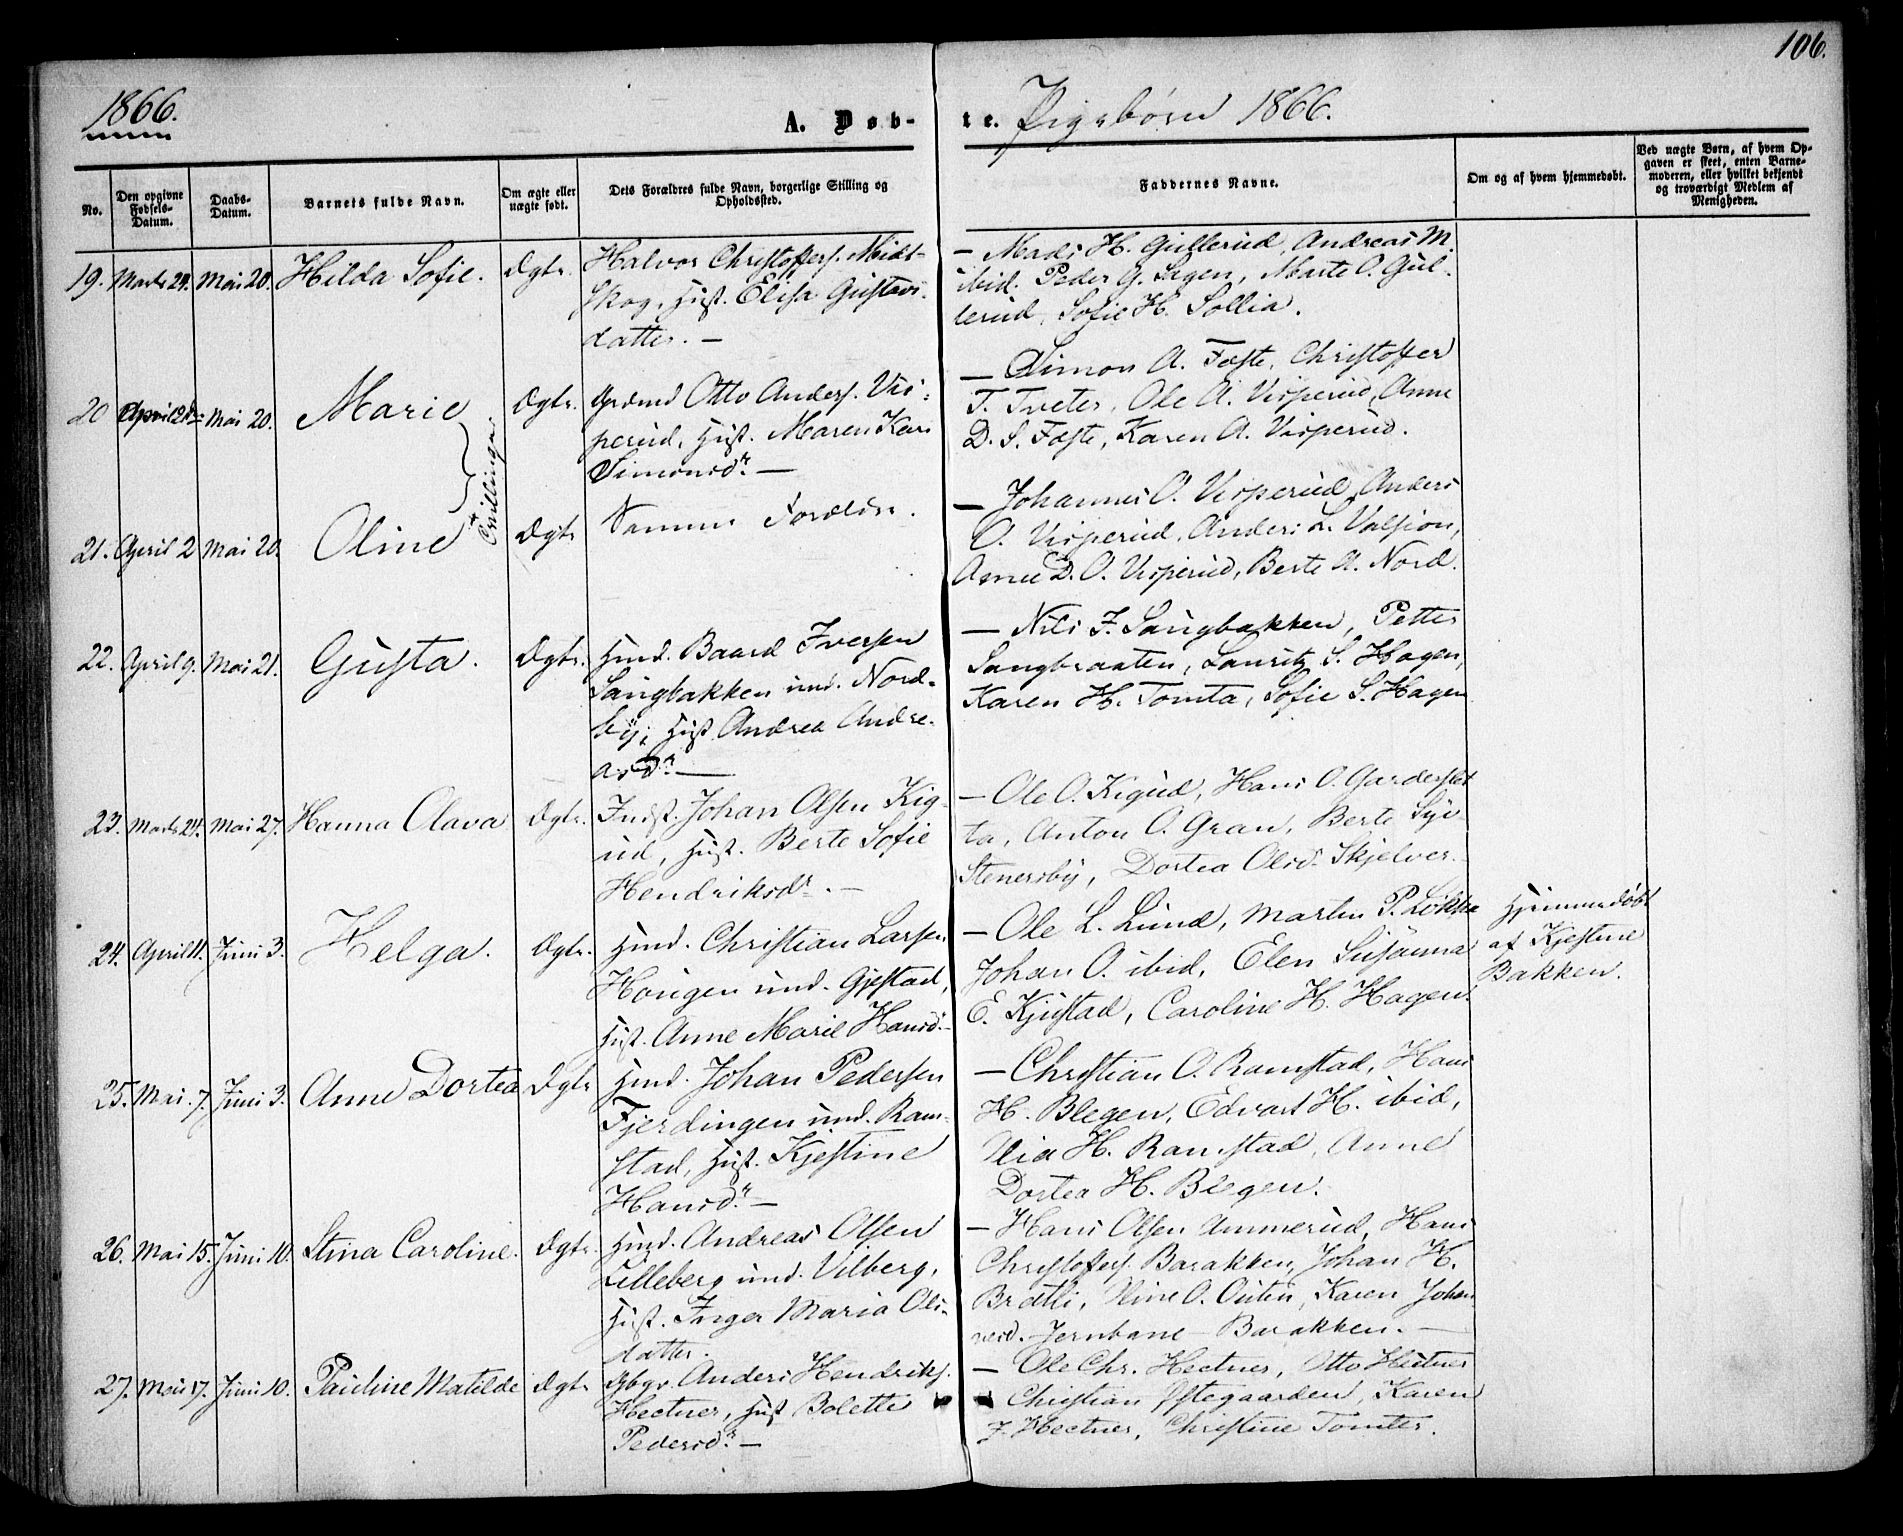 106.
1866.
A. Døb-
te. Pigebørn 1866.
No.
Den opgivne Fødsels-Datum.
Daabs-Datum.
Barnets fulde Navn.
Om ægte eller uægte født.
Dets Forældres fulde Navn, borgerlige Stilling og Opholdssted.
Faddernes Navne.
Om og af hvem hjemmedøbt.
Ved uægte Børn, af hvem Opgaven er skeet, enten Barnemoderen, eller hvilket bekjendt og troværdigt Medlem af Menigheden.
19. Marts 29. Mai 20. Hilda Sofie. Ægte.
Halvor Christoffers. Midt-
skog, Hust. Elisa Gustavs
datter. —
— Mads H. Gullerud, Andreas M.
ibid. Peder G. Sagen, Marte O. Gul-
lerud, Sofie H. Sollia.
20 April 2den Mai 20. Marie Ægte.
Tvillinger
Grdmd Otto Anders. Vis-
perud, Hust. Maren Kari
Simonsdr. —
— Simon A. Fæste, Christoffer
T. Tveter, Ole A. Visperud, Anne
D. S. Fæste, Karen A. Visperud.
21. April 2 Mai 20. Oline Ægte
Samme Forældre.
— Johannes O. Visperud, Anders
O. Visperud, Anders L. Valsion,
Anne D. O. Visperud, Berte A. Nord.
22. April 9. Mai 21. Gusta. Ægte.
Hmd. Baard Iversen
Langbakken und. Nord-
by, Hust. Andrea Andre-
asdr. —
— Nils F. Langbakken, Petter
Langbraaten, Lauritz S. Hagen,
Karen H. Tomta, Sofie S. Hagen
23. Marts 24. Mai 27. Hanna Olava Ægte.
Indst. Johan Olsen Kig-
ud, Hust. Berte Sofie
Hendriksdr. —
— Ole O. Kigud, Hans O. Garderslet
ta, Anton O. Gran, Berte
Stenersby, Dortea Olsd. Skjelver.
24. April 11. Juni 3. Helga. Ægte.
Hmd. Christian Larsen
Hougen und. Gjestad,
Hust. Anne Marie Hansd. —
— Ole L. Lund, Martin P. Løkka
Johan O. ibid, Elen Susanna
E. Kjustad, Caroline H. Hagen.
Hjemmedøbt
af Kjestine
Bakken.
25. Mai 7. Juni 3. Anne Dortea Ægte
Hmd. Johan Pedersen
Fjerdingen und. Ram-
stad, Hust. Kjestine
Hansdr. —
— Christian O. Ramstad, Hans
H. Blegen, Edvart H. ibid,
H. Ramstad, Anne
Dortea H. Blegen.
26. Mai 15. Juni 10. Stina Caroline. Ægte.
Hmd. Andreas Olsen
Lilleberg und. Vilberg,
Hust. Inger Maria Ols-
datter.
— Hans Olsen Ammerud, Hans
Christoffers. Barakken, Johan H.
Brætli, Oline O. Outin, Karen Johan-
nesd. Jernbane-Barakken. —
27. Mai 17. Juni 10. Pauline Matilde Ægte
Gbgr. Anders Hendriks.
Hectner, Hust Bolette
Pedersdr. —
— Ole Chr. Hectner, Otto Hectner
Christian Østegaarden, Karen
J. Hectner, Christine Tomter.